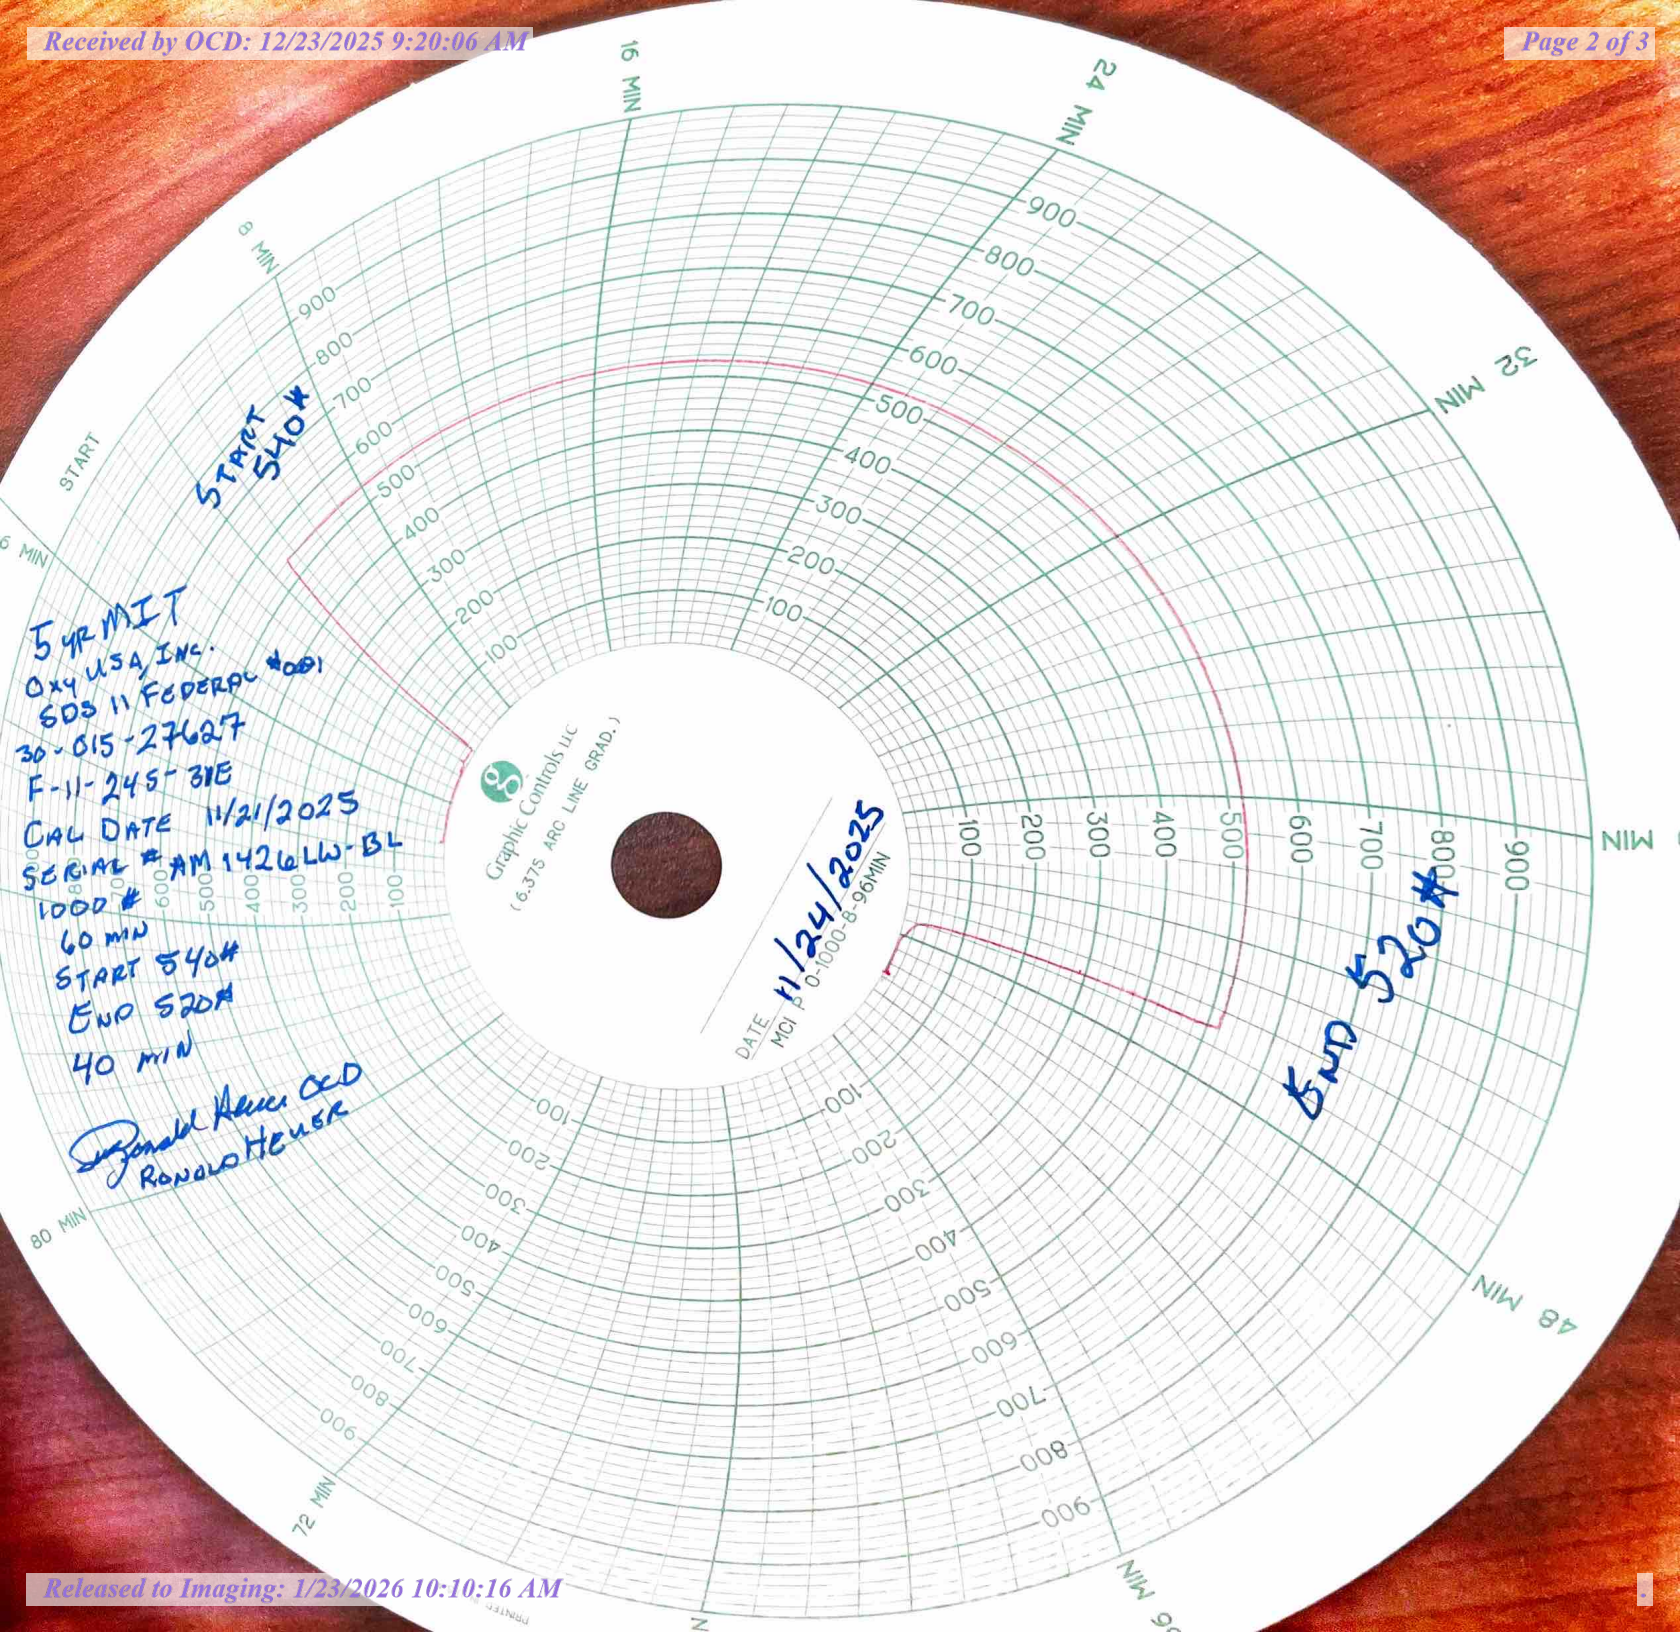 Received by OCD: 12/23/2025 9:20:06 AM
Page 2 of 3
16 MIN
24 MIN
32 MIN
MIN
48 MIN
MIN
72 MIN
80 MIN
6 MIN
START
8 MIN
900
800
700
600
500
400
300
200
100
900
800
700
600
500
400
300
200
100
100
200
300
400
500
600
700
800
900
100
200
300
400
500
600
700
800
900
100
200
300
400
500
600
700
800
900
600
500
400
300
200
100
START
540#
5 YR MIT
OXY USA, INC.
SDS 11 FEDERAL #001
30-015-27627
F-11-24S-31E
CAL DATE 11/21/2025
SERIAL # AM1426LW-BL
1000#
60 MIN
START 540#
END 520#
40 MIN
Ronald OCD
RONALD HEUER
END 520#
g
Graphic Controls LLC
(6.375 ARC LINE GRAD.)
DATE 11/24/2025
MCI P 0-1000-8-96MIN
PRINTED
Released to Imaging: 1/23/2026 10:10:16 AM